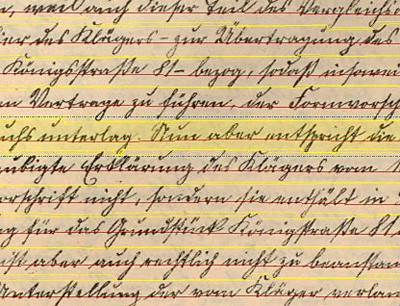 n, weil auch dieser Teil des Vergleichs
ier des Klägers – zur Übertragung des
Königsstraße 81 – bezog, sodaß insowei
en Vertrage zu führen, der Formvorsch
uchs unterlag. Nun aber entspricht die
ubigte Erklärung des Klägers vom 1
orschrift nicht, sondern sie enthält in
ng für das Grundstück Königstraße 81
ist aber auch rechtlich nicht zu beanstan
Unterstellung der vom Kläger verlan